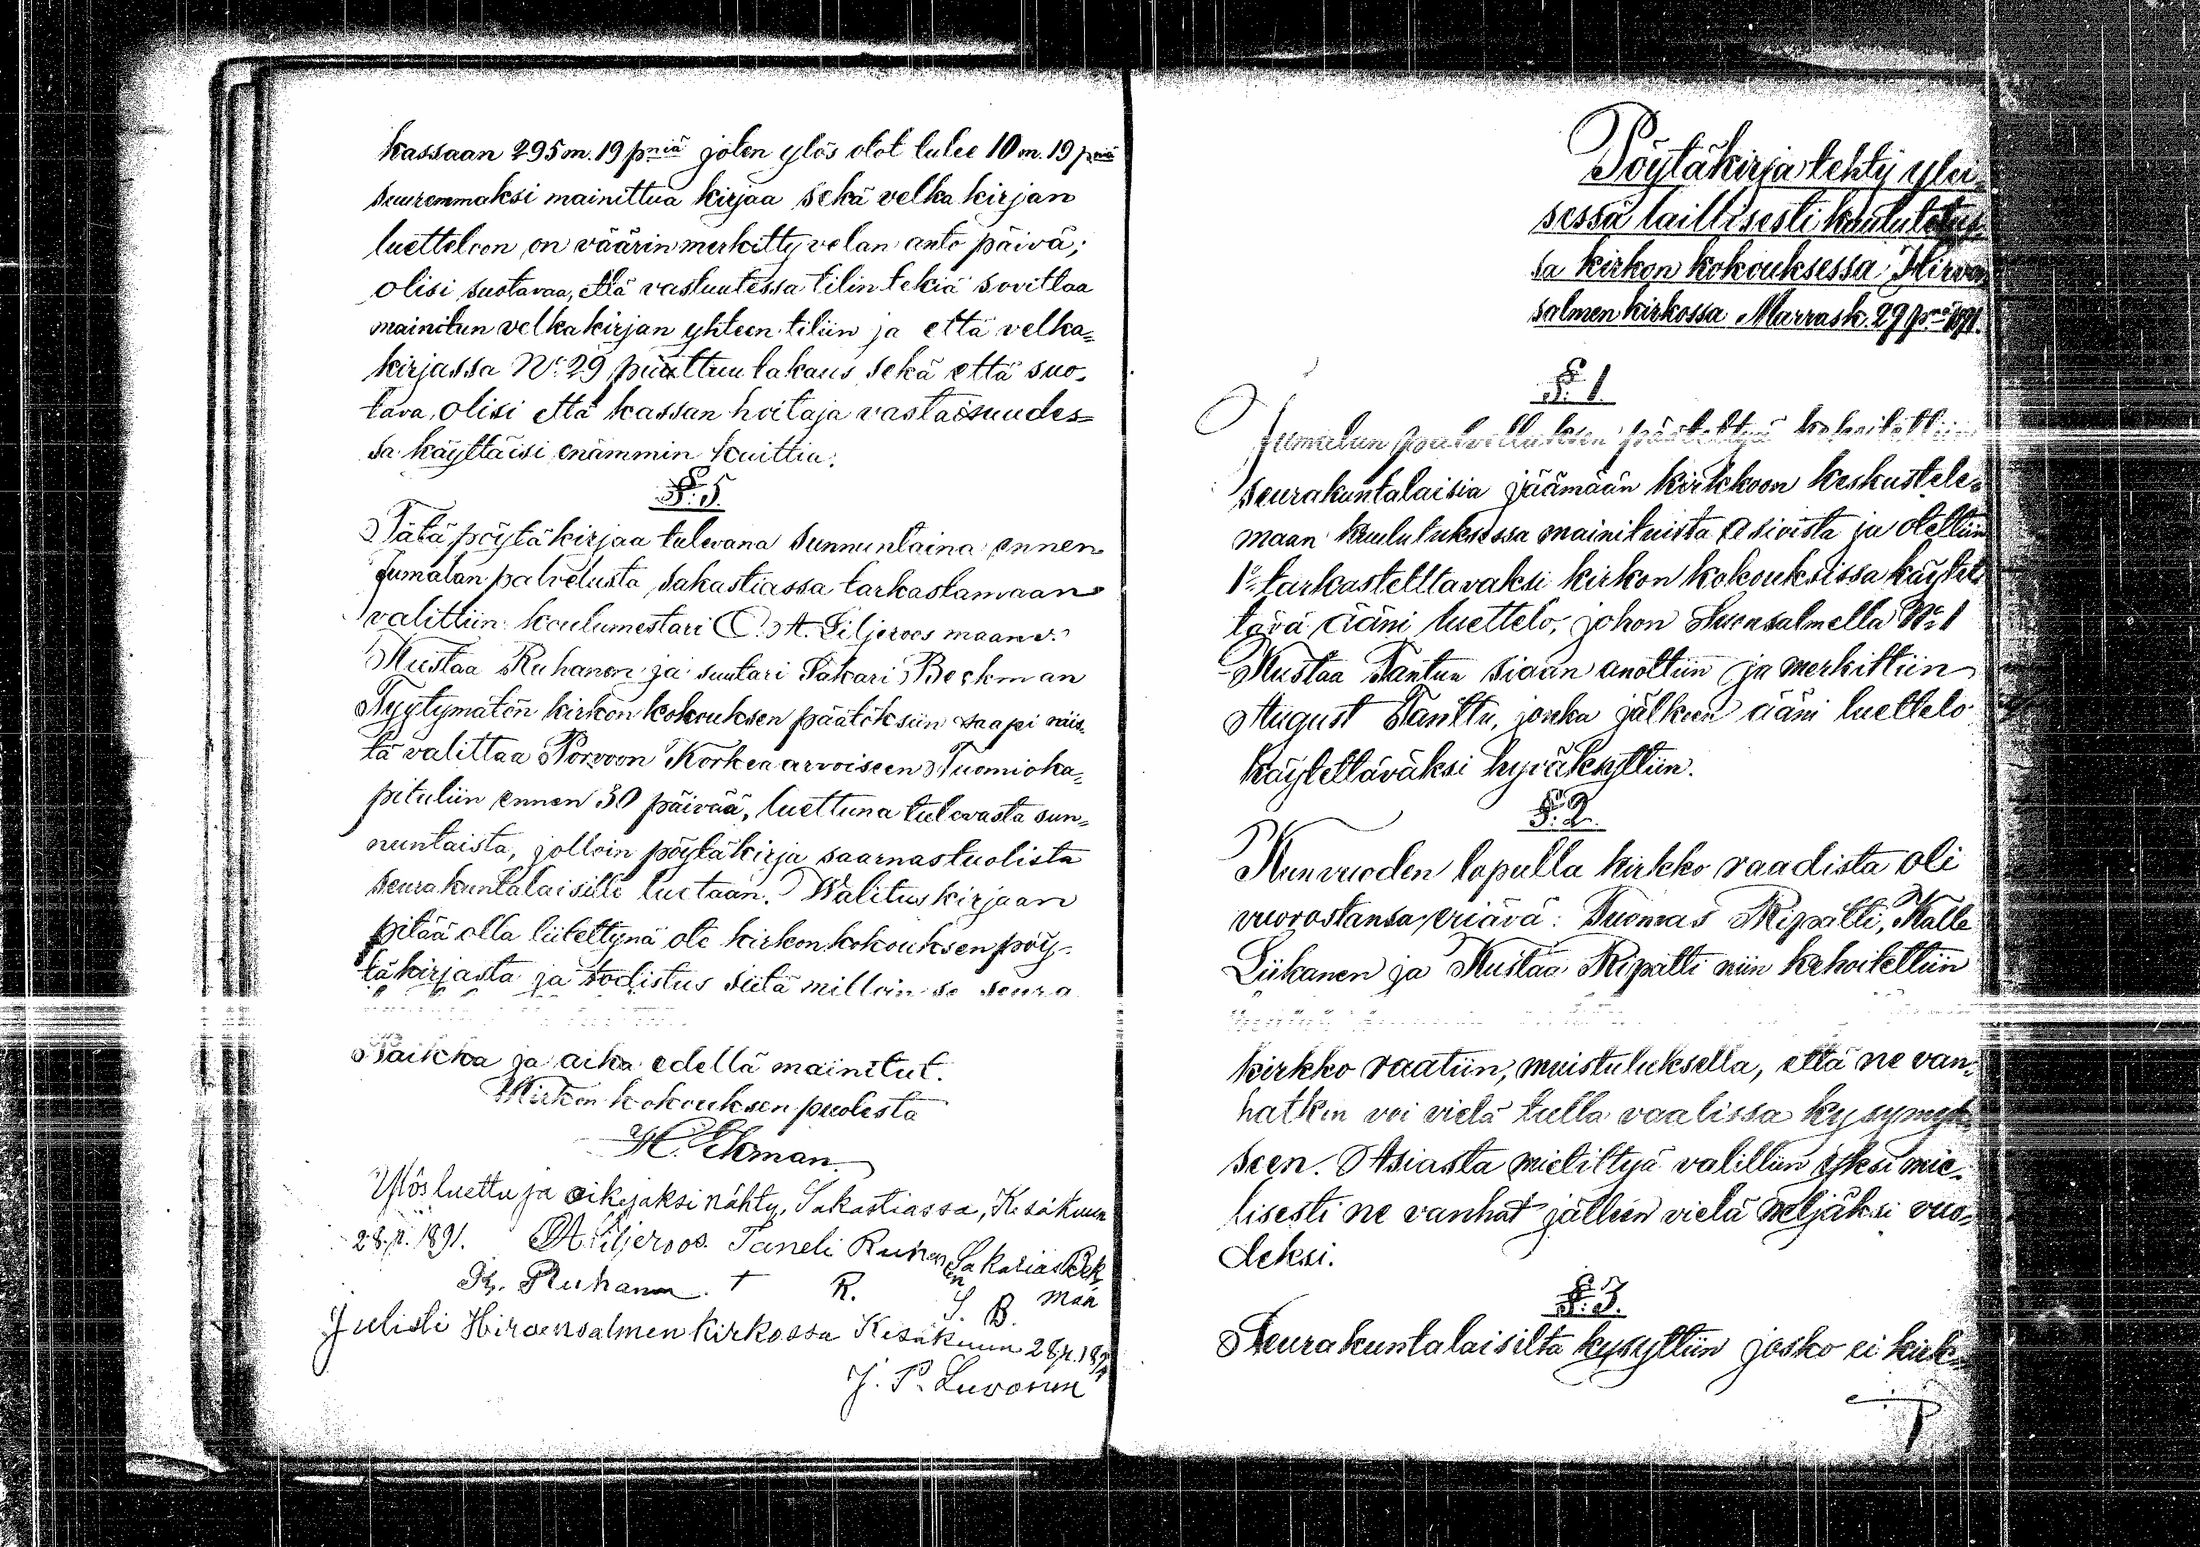 kassaan 295 m. 19 pniä joten ylös otot tulee 10 m. 19 pniä
suuremmaksi mainittua kirjaa sekä velka kirjan
luetteloon on väärin merkitty velan anto päivä;
olisi suotavaa, että vastuutessa tilin tekiä sovittaa
mainitun velkakirjan yhteen tiliin ja että velka=
kirjassa No: 29 puuttuu takaus sekä että suo-
tava olisi että kassan hoitaja vastaisuudes=
sa käyttäisi enämmin kuittia.
§: 5.
Tätä pöytäkirjaa tulevana sunnuntaina ennen
Jumalan palvelusta sakastiassa tarkastamaan
valittiin koulumestari C. A. Siljeroos maanv.
Kustaa Ruhanen ja suutari Sakari Beckman
Tyytymätön kirkon kokouksen päätöksiin saapi niis-
tä valittaa Porvoon Korkea arvoiseen Tuomioka=
pituliin ennen 30 päivää, luettuna tulevasta sun=
nuntaista, jolloin pöytäkirja saarnastuolista
seurakuntalaisille luetaan. Walituskirjaan
pitää olla liitettynä ote kirkonkokouksen pöy-
täkirjasta ja todistus siitä milloin se seura
Paikka ja aika edellä mainitut.
Kirkon kokouksen puolesta
H. Ekman.
Ylösluettu ja oikejaksi nähty, Sakastiassa, Kesäkuun
28 p. 1891. CA Siljeroos. Taneli Ruhanen Sakarias Bek
K. Ruhanen. + R. S. B. man
Julisti Hirvensalmen kirkossa Kesäkuun 28 p. 1891
J. P. Luvonen
Pöytäkirja tehty ylei-
sessä laillisesti kuulutetus
sa kirkon kokouksessa Hirven
salmen kirkossa Marrask. 29 pnä 1891.
§: 1.
Jumalan palvelluksen päätettyä kehoitettiin
seurakuntalaisia jäämään kirkkoon keskustele=
maan kuulutuksessa mainituista asioista ja otettiin
1o tarkastelttavaksi kirkon kokouksissa käytet
tävä ääni luettelo, johon Suonsalmella No 1
Kustaa Tantun siaan anottiin ja merkittiin
August Tanttu, jonka jälkeen ääni luettelo
käytettäväksi hyväksyttiin.
§: 2.
Kun vuoden lopulla kirkko raadista oli
vuorostansa eriävä: Tuomas Ripatti, Kalle
Liikanen ja Kustaa Ripatti niin kehoitettiin
kirkko raatiin, muistutuksella, että ne van-
hatkin voi vielä tulla vaalissa kysymyk
seen. Asiasta mietittyä valittiin yksi mie-
lisesti ne vanhat jälleen vielä neljäksi vuo-
deksi.
§: 3.
Seurakuntalaisilta kysyttiin josko ei kirk=